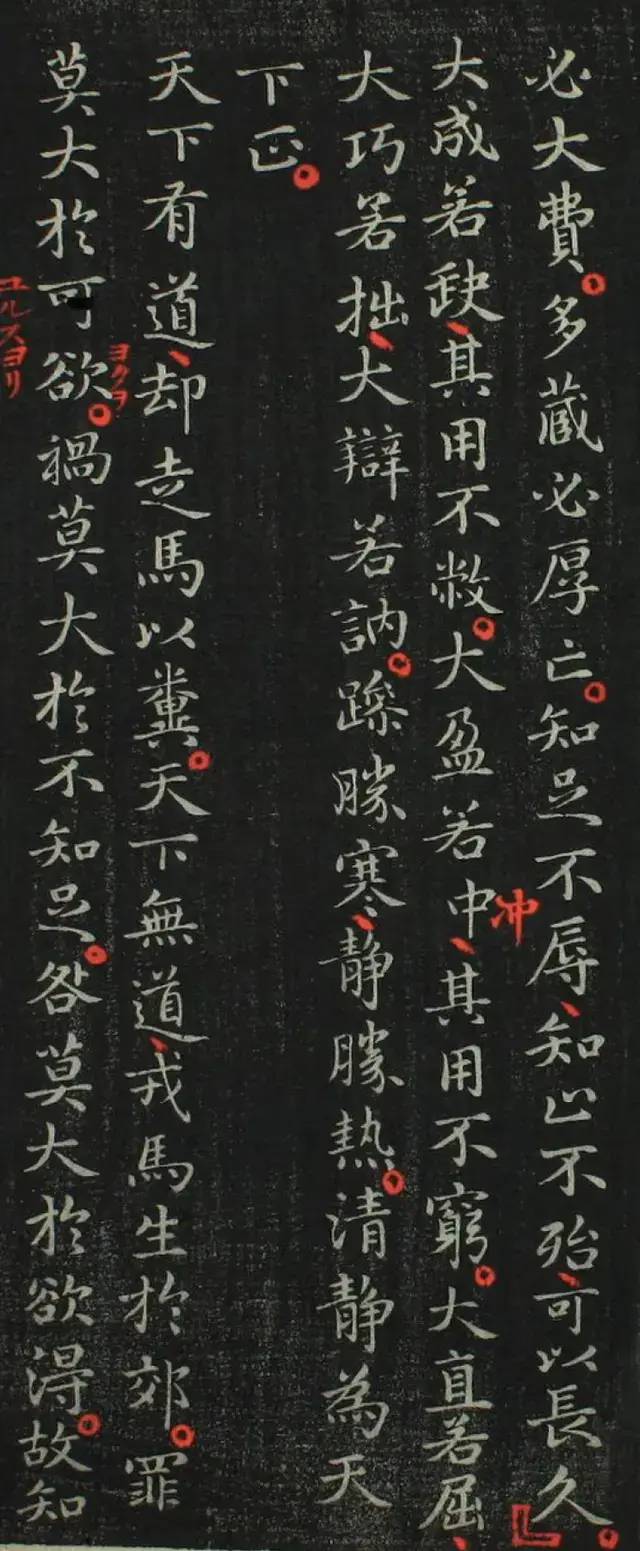 必大費。多蔵必厚亡。知足不辱、知止不殆、可以長久。
大成若缺、其用不敝。大盈若中、其用不窮。大直若屈、
冲
大巧若拙、大辯若訥。躁勝寒、静勝熱。清静為天
下正。
天下有道、却走馬以糞。天下無道、戎馬生於郊。罪
莫大於可欲。禍莫大於不知足。咎莫大於欲得。故知
ヨクヲ
ユルスヨリ